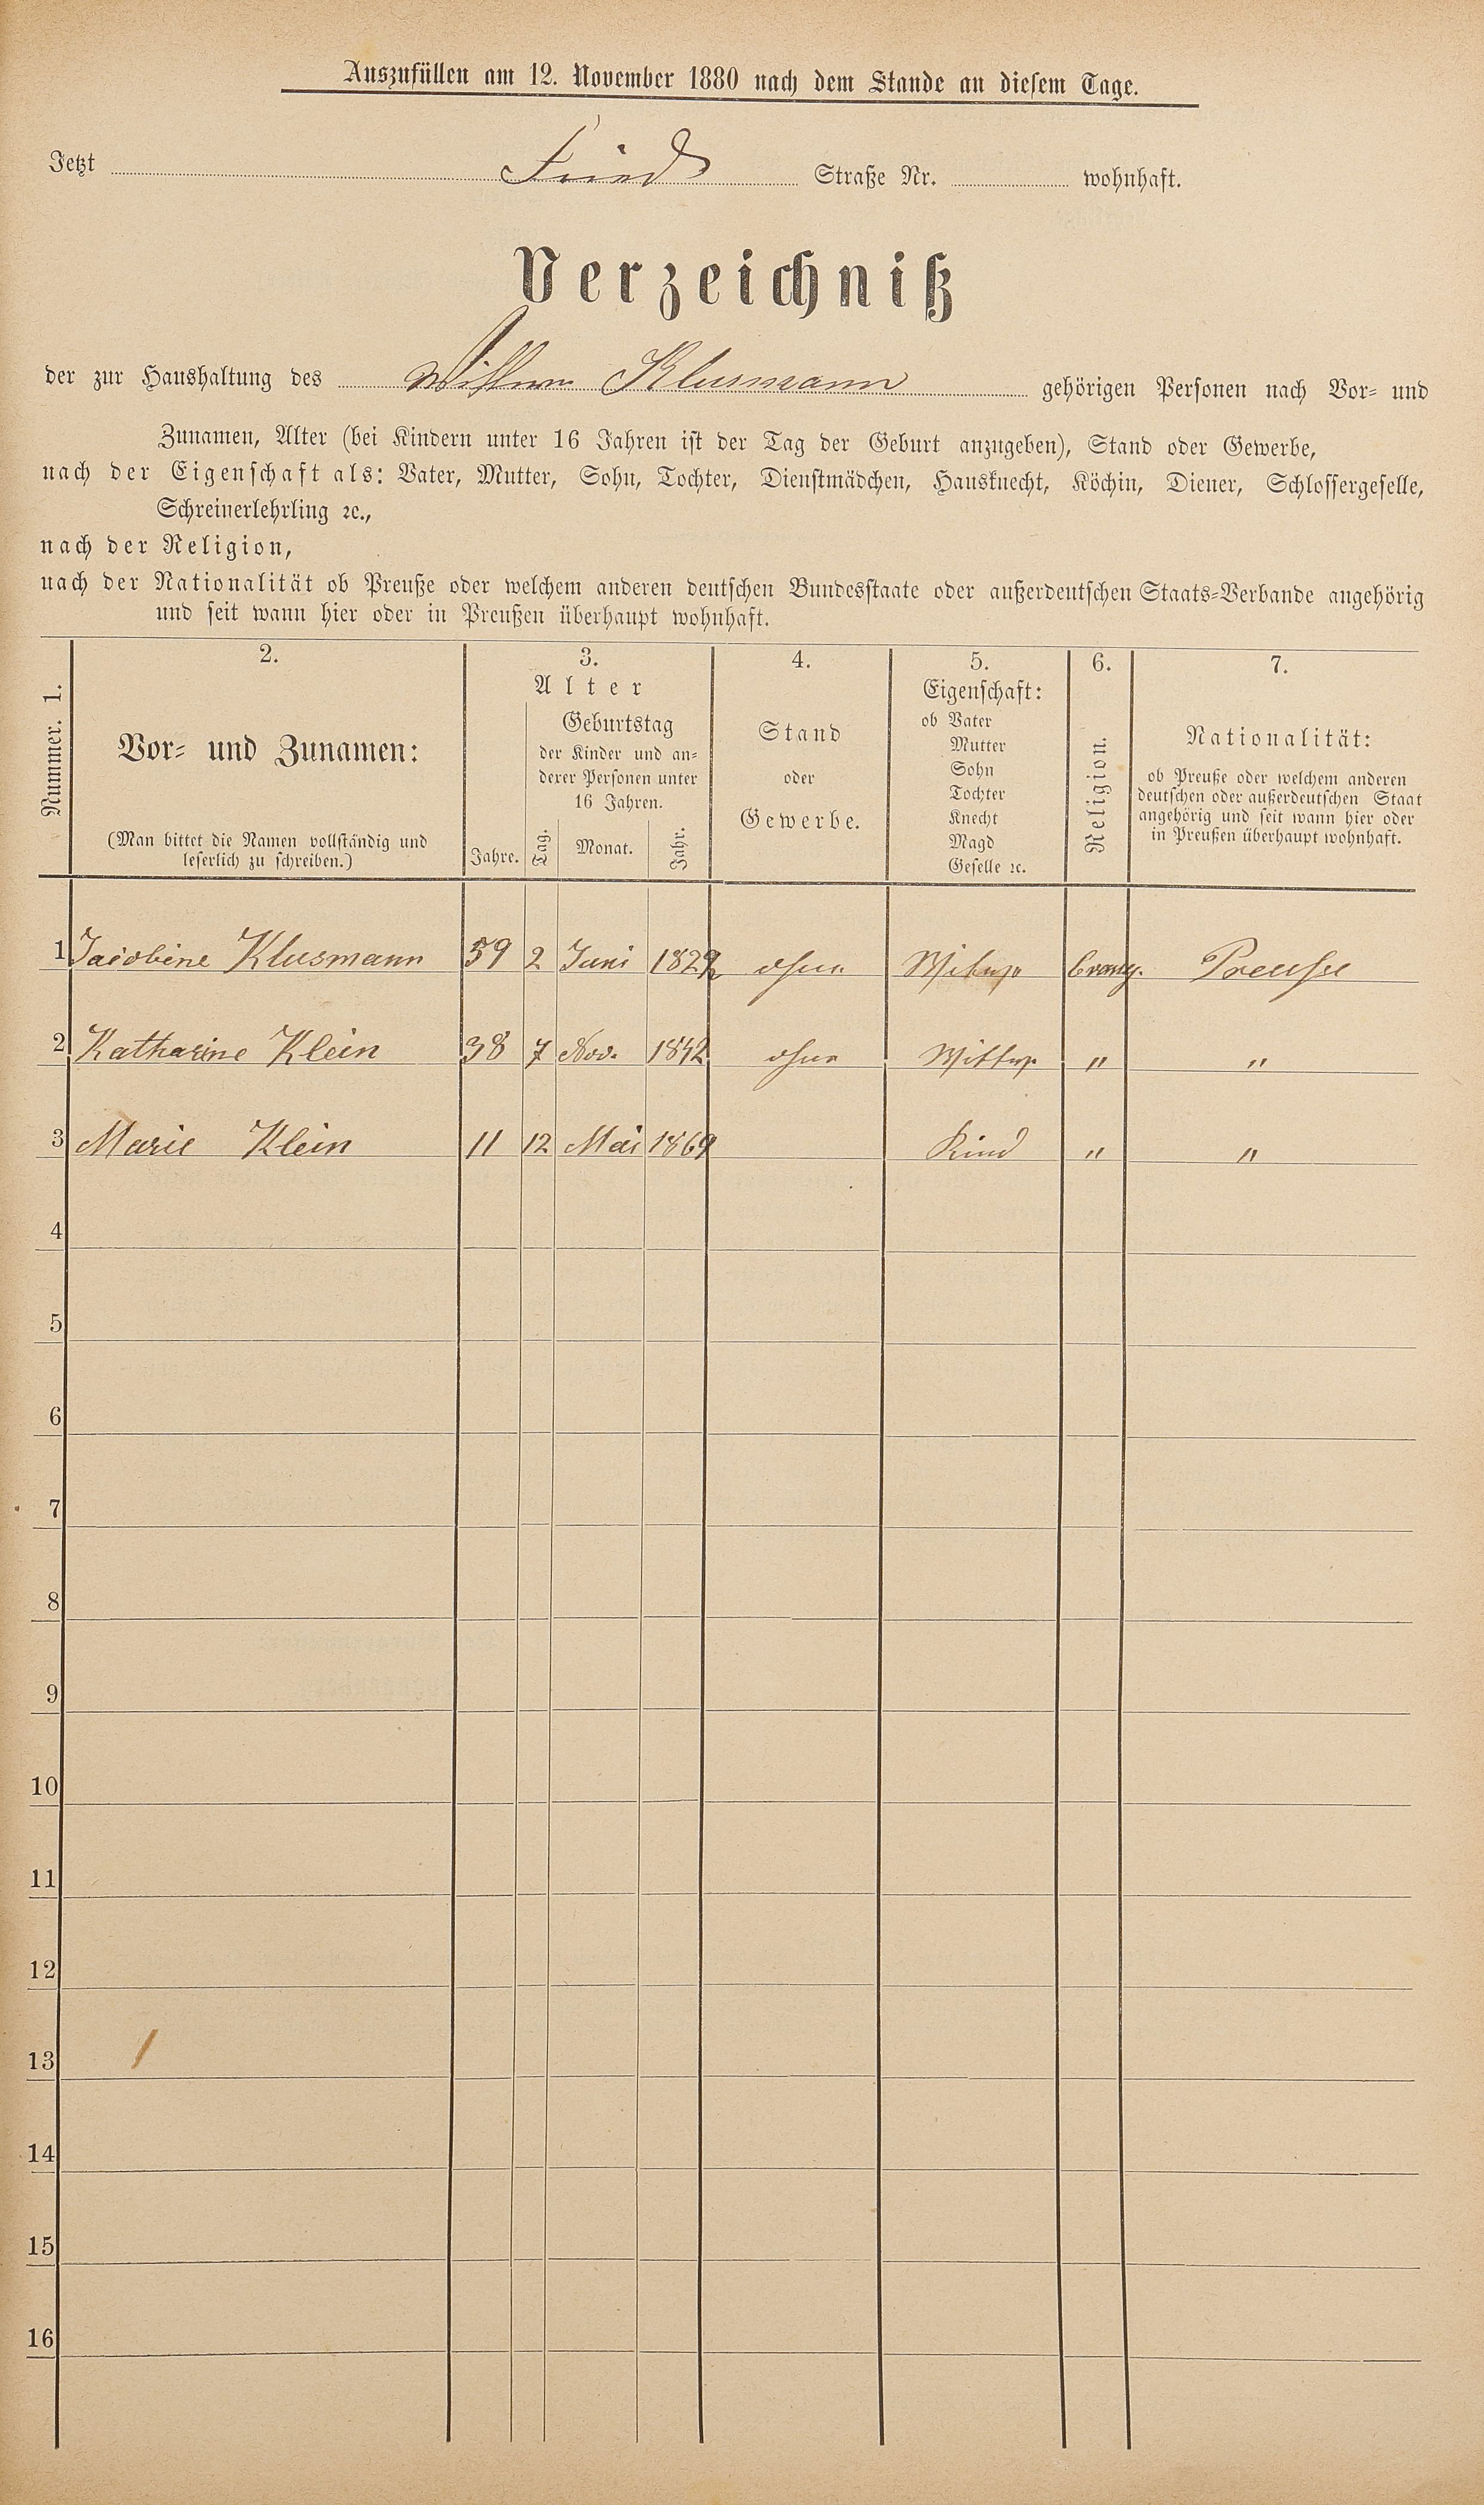 Auszufüllen am 12. November 1880 nach dem Stande an diesem Tage.
Jetzt Straße Nr. wohnhaft.
Verzeichniß
der zur Haushaltung des Klusmann gehörigen Personen nach Vor- und
Zunamen, Alter (bei Kindern unter 16 Jahren ist der Tag der Geburt anzugeben), Stand oder Gewerbe,
nach der Eigenschaft als: Vater, Mutter, Sohn, Tochter, Dienstmädchen, Hausknecht, Köchin, Diener, Schlossergeselle,
Schreinerlehrling ꝛc.,
nach der Religion,
nach der Nationalität ob Preuße oder welchem anderen deutschen Bundesstaate oder außerdeutschen Staats-Verbande angehörig
und seit wann hier oder in Preußen überhaupt wohnhaft.
Nummer. 1.
2.
Vor- und Zunamen:
(Man bittet die Namen vollständig und
leserlich zu schreiben.)
3.
Alter
Jahre.
Geburtstag
der Kinder und an-
derer Personen unter
16 Jahren.
Tag. Monat. Jahr.
4.
Stand
oder
Gewerbe.
5.
Eigenschaft:
ob Vater
Mutter
Sohn
Tochter
Knecht
Magd
Geselle ꝛc.
6.
Religion.
7.
Nationalität:
ob Preuße oder welchem anderen
deutschen oder außerdeutschen Staat
angehörig und seit wann hier oder
in Preußen überhaupt wohnhaft.
1 Jacobine Klusmann 59 2 Juni ohne Wittwe Evang. Preuße
2 Katharine Klein 38 7 Nov. 1842 ohne Wittwe " "
3 Marie Klein 11 12 Mai 1869 Kind " "
4
5
6
7
8
9
10
11
12
13
14
15
16